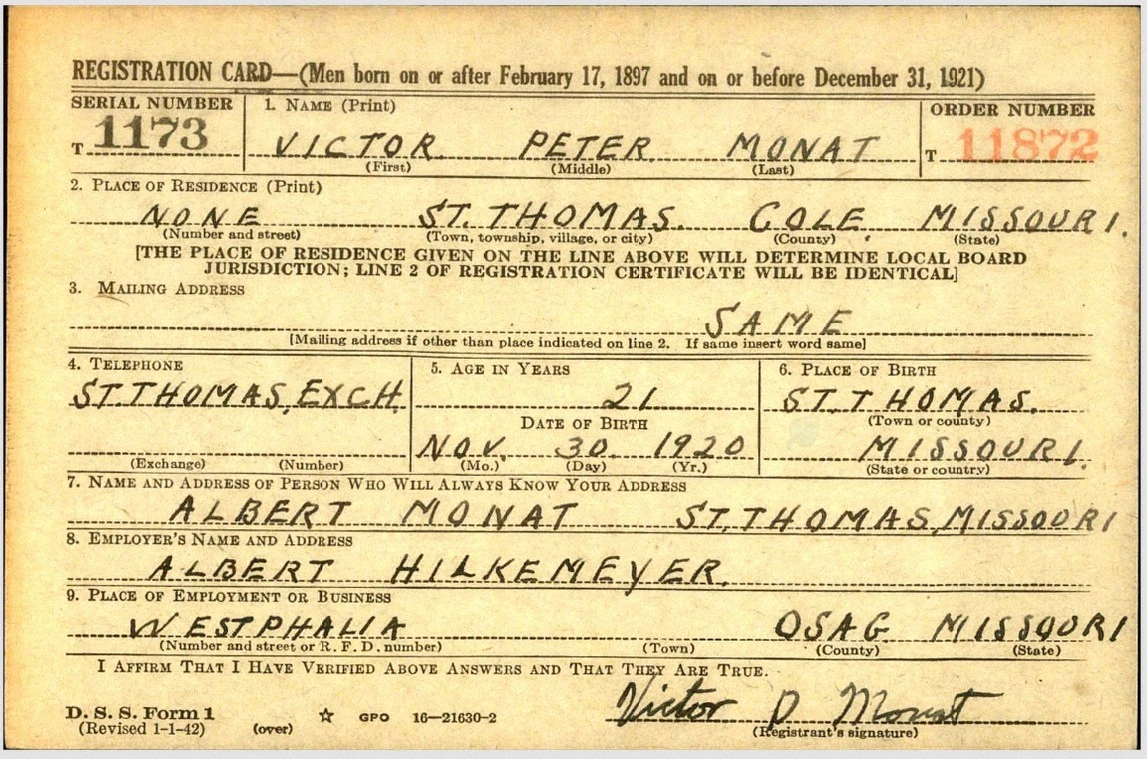 REGISTRATION CARD—(Men born on or after February 17, 1897 and on or before December 31, 1921)
SERIAL NUMBER
T 1173
1. NAME (Print)
VICTOR PETER MONAT
(First) (Middle) (Last)
ORDER NUMBER
T 11872
2. PLACE OF RESIDENCE (Print)
NONE ST. THOMAS. COLE. MISSOURI.
(Number and street) (Town, township, village, or city) (County) (State)
[THE PLACE OF RESIDENCE GIVEN ON THE LINE ABOVE WILL DETERMINE LOCAL BOARD
JURISDICTION; LINE 2 OF REGISTRATION CERTIFICATE WILL BE IDENTICAL]
3. MAILING ADDRESS
SAME
[Mailing address if other than place indicated on line 2. If same insert word same]
4. TELEPHONE
ST. THOMAS, EXCH.
(Exchange) (Number)
5. AGE IN YEARS
21
DATE OF BIRTH
NOV. 30. 1920
(Mo.) (Day) (Yr.)
6. PLACE OF BIRTH
ST. THOMAS.
(Town or county)
MISSOURI.
(State or country)
7. NAME AND ADDRESS OF PERSON WHO WILL ALWAYS KNOW YOUR ADDRESS
ALBERT MONAT ST. THOMAS, MISSOURI
8. EMPLOYER'S NAME AND ADDRESS
ALBERT HILKEMEYER.
9. PLACE OF EMPLOYMENT OR BUSINESS
WESTPHALIA OSAG MISSOURI
(Number and street or R. F. D. number) (Town) (County) (State)
I AFFIRM THAT I HAVE VERIFIED ABOVE ANSWERS AND THAT THEY ARE TRUE.
Victor P Monat
(Registrant's signature)
D. S. S. Form 1
(Revised 1-1-42) (over) ☆ GPO 16—21630-2